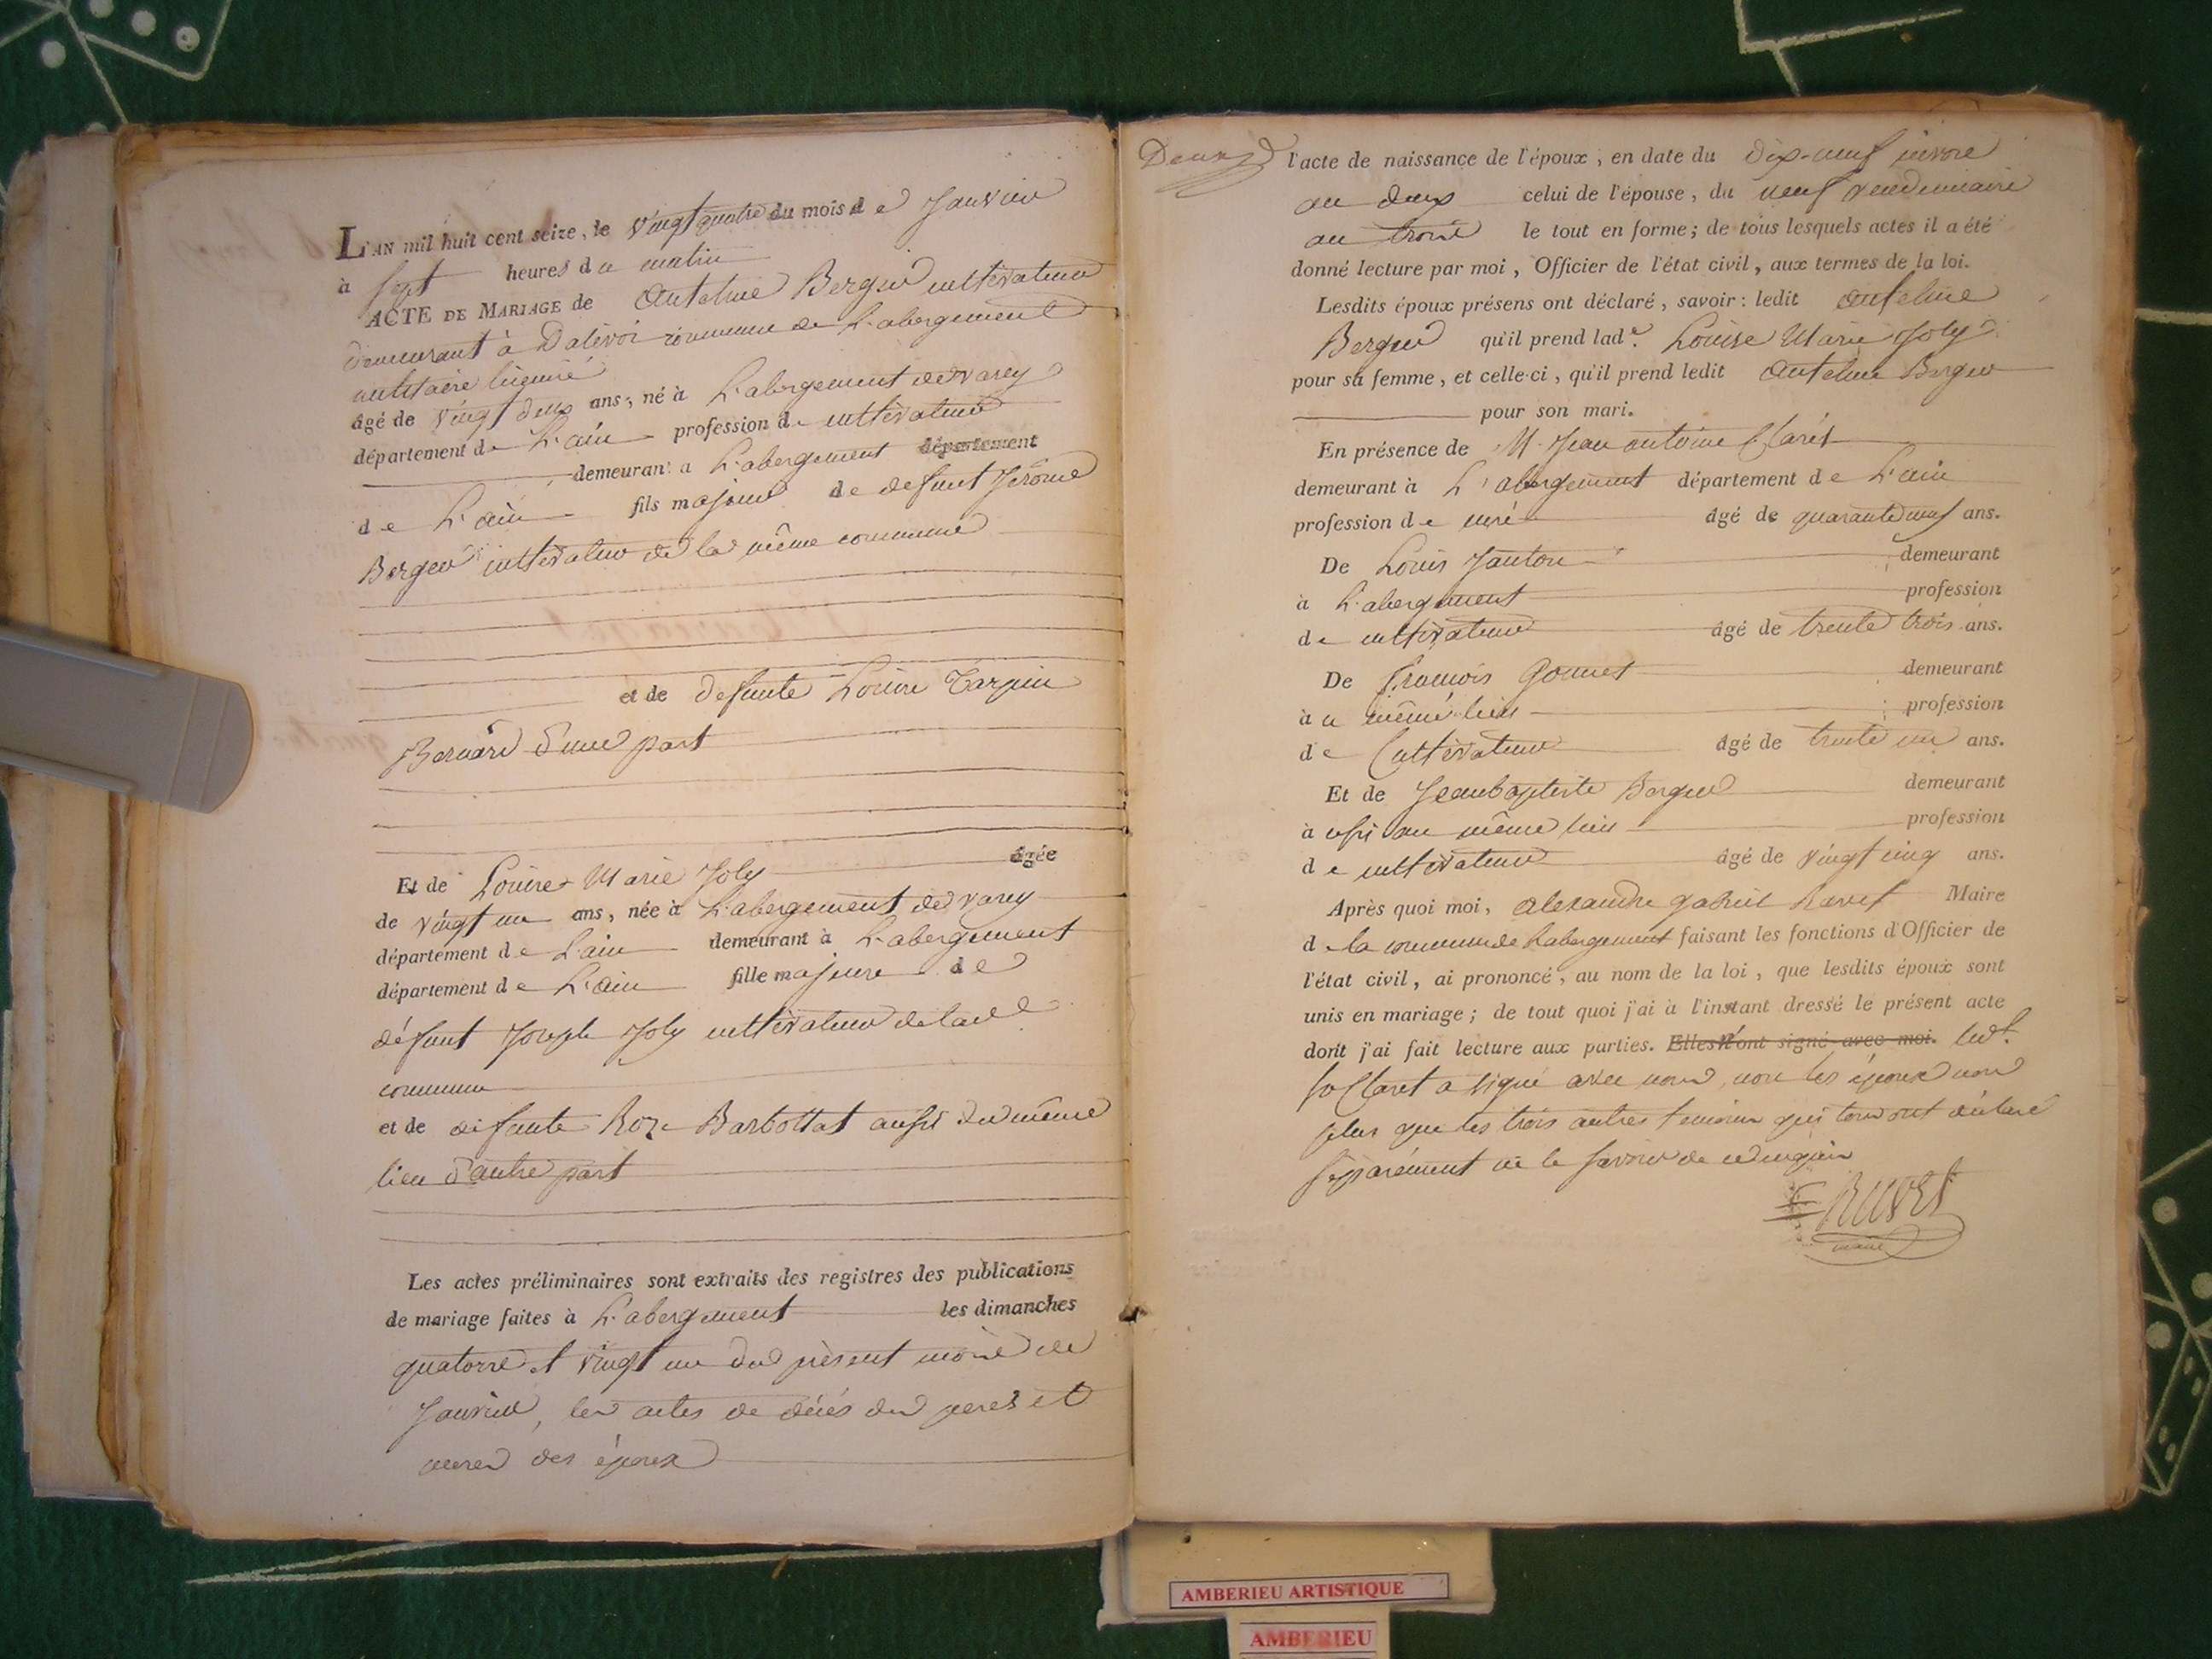 L'AN mil huit cent seize, le vingt quatre du mois de Janvier
à sept heures du matin
ACTE DE MARIAGE de Antelme Berger cultivateur
demeurant à Dalivoi commune de L'abergement
militaire licencié
âgé de vingt deux ans, né à L'abergement de varey
département de L'ain profession de cultivateur
demeurant à L'abergement département
de L'ain fils majeur de defunt Jerôme
Berger cultivateur de la même commune
et de defunte Louise Tarpin
Bernard d'une part
Et de Louise Marie Joly âgée
de vingt un ans, née à L'abergement de varey
département de L'ain demeurant à L'abergement
département de L'ain fille majeure de
défunt Joseph Joly cultivateur de lad
commune
et de defunte Roze Barbottat aussi du même
lieu d'autre part
Les actes préliminaires sont extraits des registres des publications
de mariage faites à L'abergement les dimanches
quatorze et vingt un du présent mois de
Janvier, les actes de décés des peres et
meres des époux
Deux
l'acte de naissance de l'époux, en date du dix-neuf nivose
an deux celui de l'épouse, du neuf vendemiaire
an trois le tout en forme; de tous lesquels actes il a été
donné lecture par moi, Officier de l'état civil, aux termes de la loi.
Lesdits époux présens ont déclaré, savoir: ledit Antelme
Berger qu'il prend lade. Louise Marie Joly
pour sa femme, et celle-ci, qu'il prend ledit Antelme Berger
pour son mari.
En présence de M. Jean antoine Claret
demeurant à L'abergement département de L'ain
profession de curé âgé de quarante neuf ans.
De Louis Janton demeurant
à L'abergement profession
de cultivateur âgé de trente trois ans.
De François Gonnet demeurant
à u même lieu profession
de Cultivateur âgé de trente un ans.
Et de Jeanbaptiste Berger demeurant
à ussi au même lieu profession
de cultivateur âgé de vingt cinq ans.
Après quoi moi, alexandre gabriel Maire
de la commune de Labergement faisant les fonctions d'Officier de
l'état civil, ai prononcé, au nom de la loi, que lesdits époux sont
unis en mariage; de tout quoi j'ai à l'instant dressé le présent acte
dont j'ai fait lecture aux parties. Elles n'ont signé avec moi. led.
Sr Claret a signé avec nous, non les époux non
plus que les trois autres temoins qui tous ont déclaré
séparément ne le savoir de ce enquis
maire
AMBERIEU ARTISTIQUE
AMBERIEU